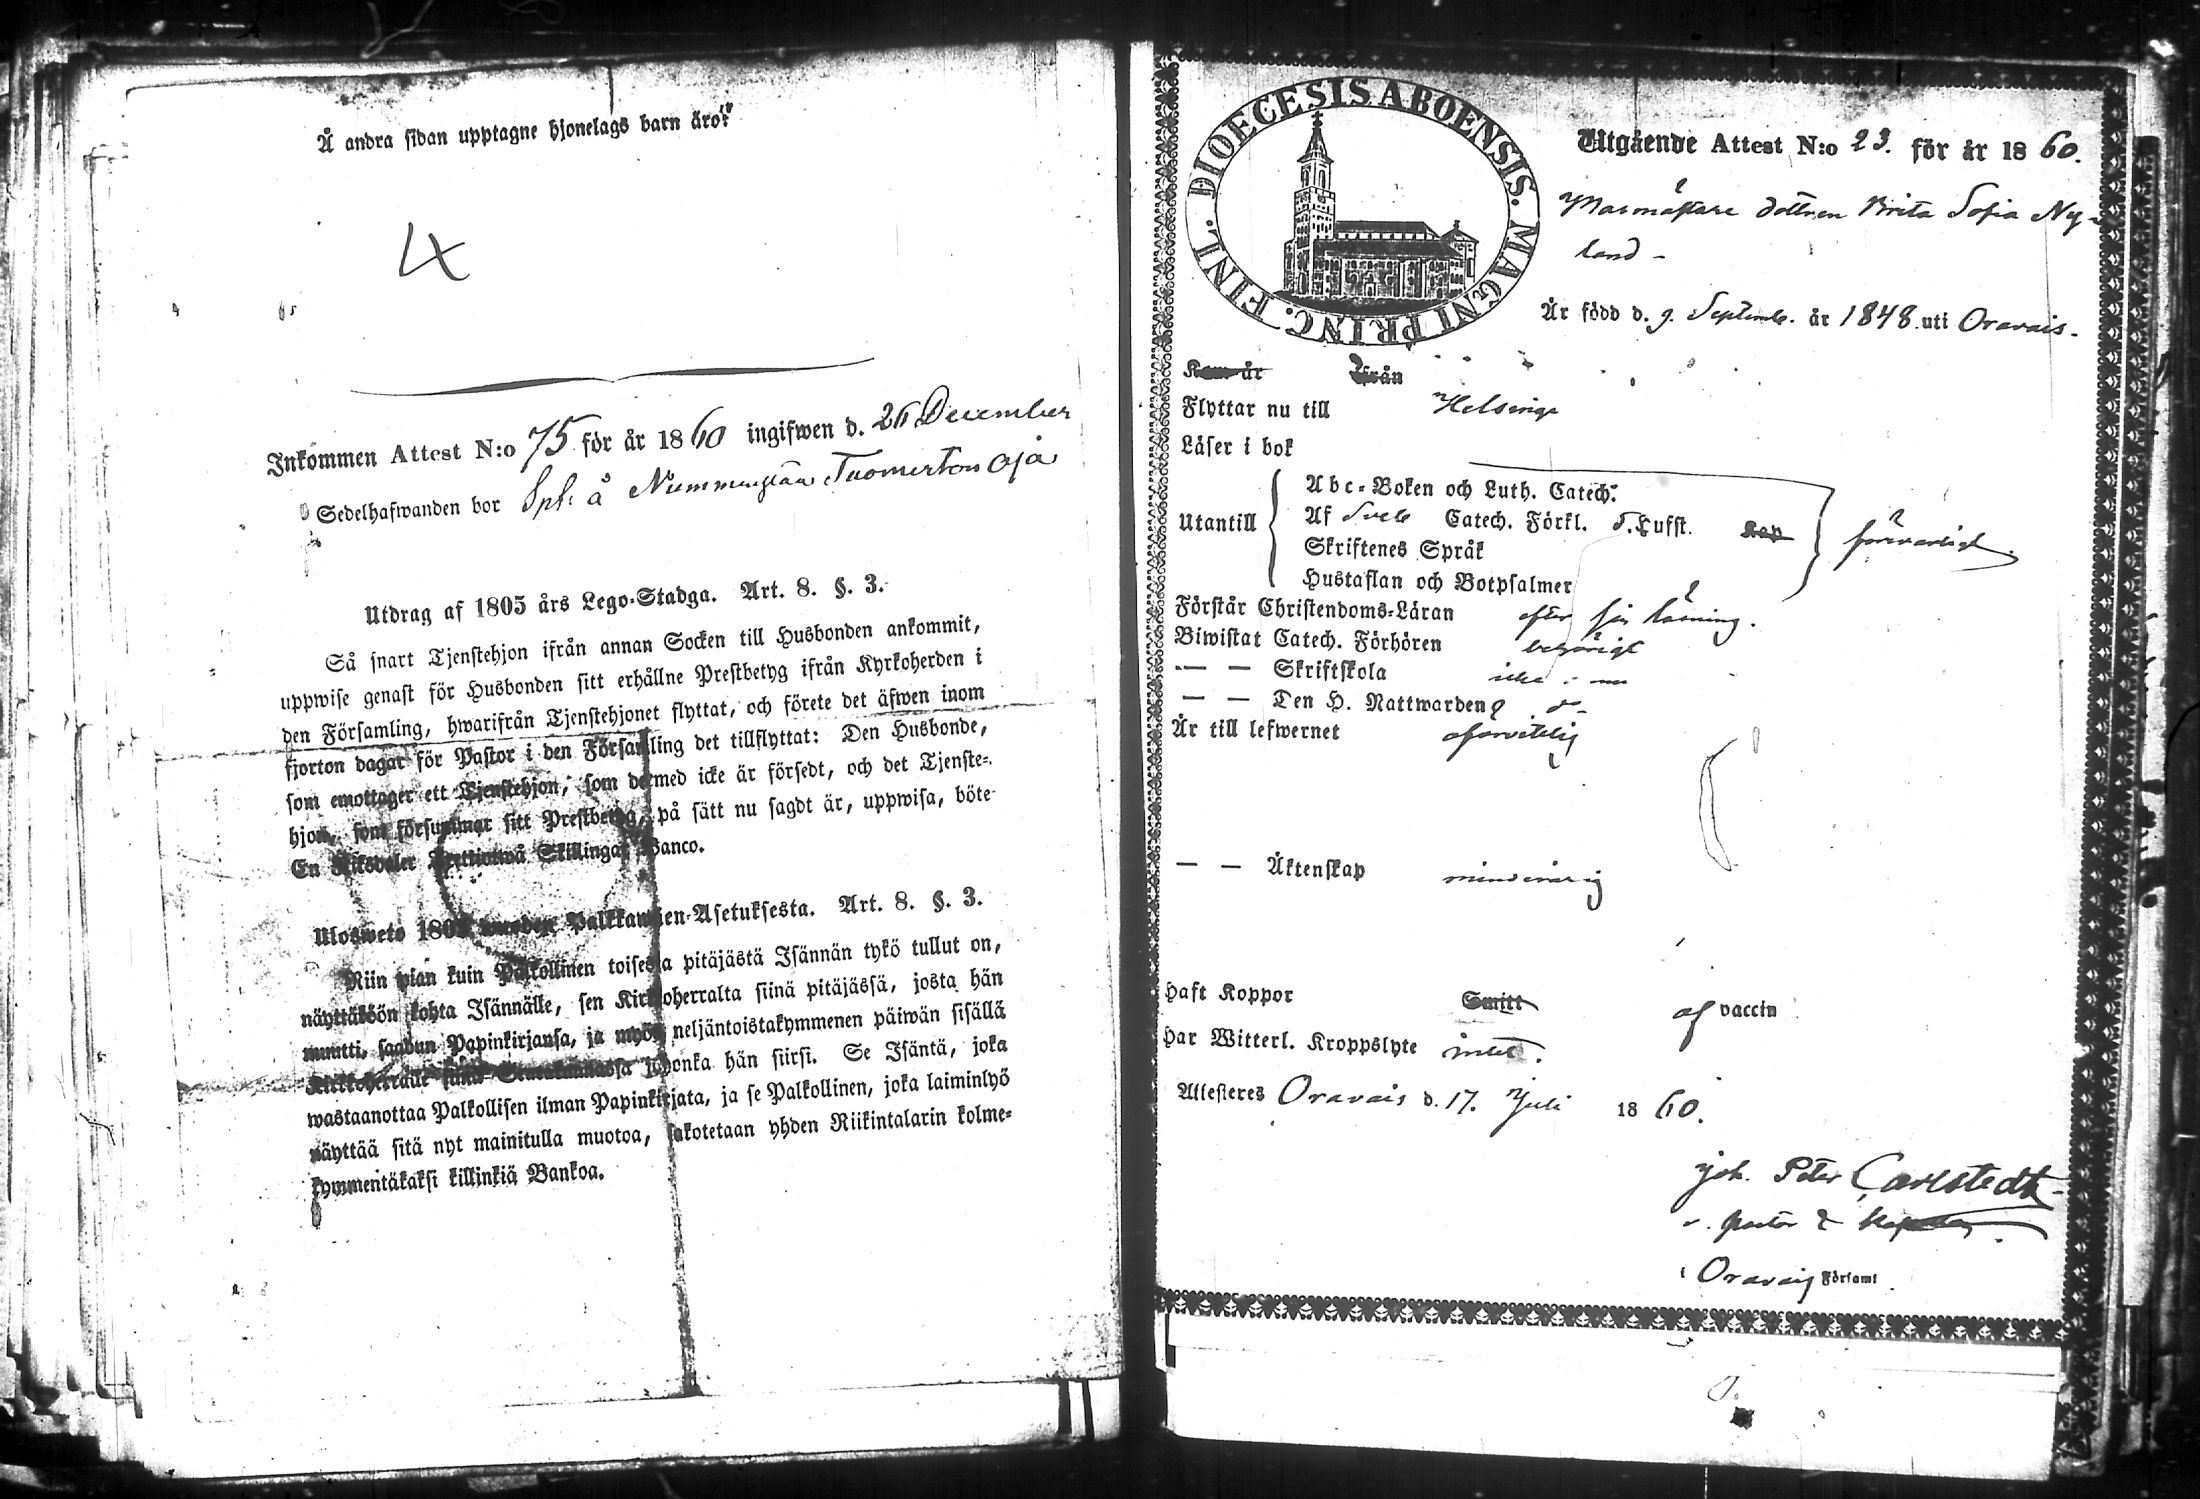 Å andra sidan upptagne hjonelags barn äro:
Inkommen Attest N:o 75 för år 1860 ingifwen d. 26 December
Sedelhafwanden bor Spf. å
Utdrag af 1805 års Lego-Stadga. Art. 8. §. 3.
Så snart Tjenstehjon ifrån annan Socken till Husbonden ankommit,
uppwise genast för Husbonden sitt erhållne Prestbetyg ifrån Kyrkoherden i
den Församling, hwarifrån Tjenstehjonet flyttat, och förete det äfwen inom
fjorton dagar för Pastor i den Församling det tillflyttat: Den Husbonde,
som emottager ett Tjenstehjon, som dermed icke är försedt, och det Tjenste-
hjon, som försummar sitt Prestbetyg, på sätt nu sagdt är, uppwisa, böte
En Riksdaler Trettiotwå Skillingar Banco.
Uloswето 1805 wuoden Palkkawäen-Asetuksesta. Art. 8. §. 3.
Niin pian kuin Palkollinen toisesta pitäjästä Isännän tykö tullut on,
näyttäköön kohta Isännälle, sen Kirkkoherralta siinä pitäjässä, josta hän
muutti, saadun Papinkirjansa, ja myös neljäntoistakymmenen päiwän sisällä
Kirkkoherralle siinä Seurakunnassa jhonka hän siirsi. Se Isäntä, joka
wastaanottaa Palkollisen ilman Papinkirjata, ja se Palkollinen, joka laiminlyö
näyttää sitä nyt mainitulla muotoa, sakotetaan yhden Riikintalarin kolme-
kymmentäkaksi killinkiä Bankoa.
DIOECESIS ABOENSIS. MAGNI PRINC. FINL.
Utgående Attest N:o 23. för år 1860.
Masmästare dottren Brita Sofia Ny-
land -
Är född d. 9. Septemb. år 1848 uti Oravais.
Kom år Ifrån
Flyttar nu till Helsinge
Läser i bok
Utantill
Abc-Boken och Luth. Catech.
Af Sveb Catech. Förkl. o. Lufft. Kap
Skriftenes Språk
Hustaflan och Botpsalmer
försvarligt
Förstår Christendoms-Läran efter sin läsning.
Biwistat Catech. Förhören behörigt
— — Skriftskola icke
— — Den H. Nattwarden do
Är till lefwernet oförvitelig
— — Äktenskap minderårig
Haft Koppor Smitt af vaccin
Har Witterl. Kroppslyte intet.
Attesteres Oravais d. 17. Juli 1860.
Joh. Peter Carlstedt
v. pastor &
i Oravais Församl